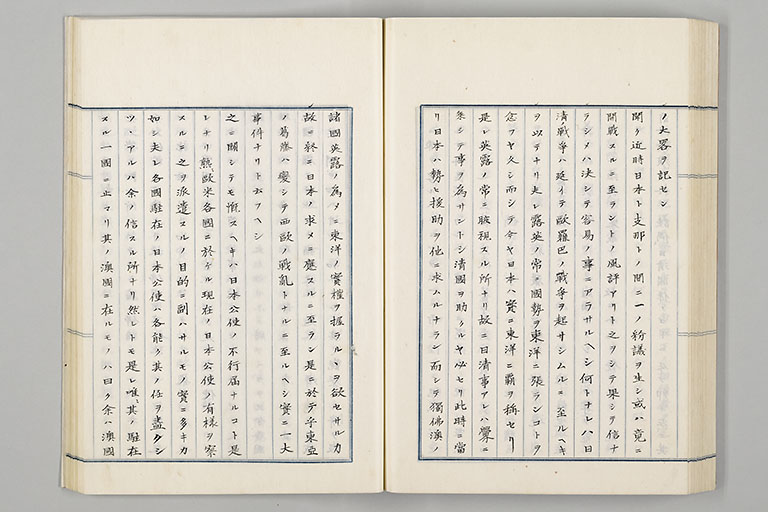 ノ大畧ヲ記セン
聞ク近時日本ト支那トノ間ニ一ノ紛議ヲ生シ或ハ竟ニ
開戦スルニ至ラントノ風評アリト之ヲシテ果シテ信ナ
ラシメハ決シテ容易ノ事ニアラサルヘシ何トナレハ日
清ノ戦争ハ延イテ歐羅巴ノ戦争ヲ起サシムルニ至ルヘキ
ヲ以テナリ夫レ露英ノ常ニ國勢ヲ東洋ニ張ランコトヲ
念フヤ久シ而シテ今ヤ日本ハ實ニ東洋ニ覇ヲ稱セリ
是レ英露ノ常ニ睥視スル所ナリ故ニ日清事アレハ釁ニ
乗シテ事ヲ為サントシ清國ヲ助クルヤ必セリ此時ニ當
リ日本ハ勢ヒ援助ヲ他ニ求ムルナラン而シテ獨佛澳ノ
諸國英露ノ為メニ東洋ノ實權ヲ握ラルヽヲ欲セサルカ
故ニ終ニ日本ノ求メニ應スルニ至ラン是ニ於テ乎東亞
ノ葛藤ハ變シテ西歐ノ戦亂トナルニ至ルヘシ實ニ一大
事件ナリト云フヘシ
之ニ關シテモ慨スヘキハ日本公使ノ不行届ナルコト是
レナリ熟歐米各國ニ於ケル現在ノ日本公使ノ有様ヲ察
スルニ之ヲ派遣スルノ目的ニ副ハサルモノ實ニ多キカ
如シ夫レ各國駐在ノ日本公使ハ各能ク其ノ任ヲ盡クシ
ツヽアルハ余ノ信スル所ナリ然レトモ是レ唯其ノ駐在
スル一國ニ止マリ其ノ澳國ニ在ルモノハ曰ク余ハ澳國